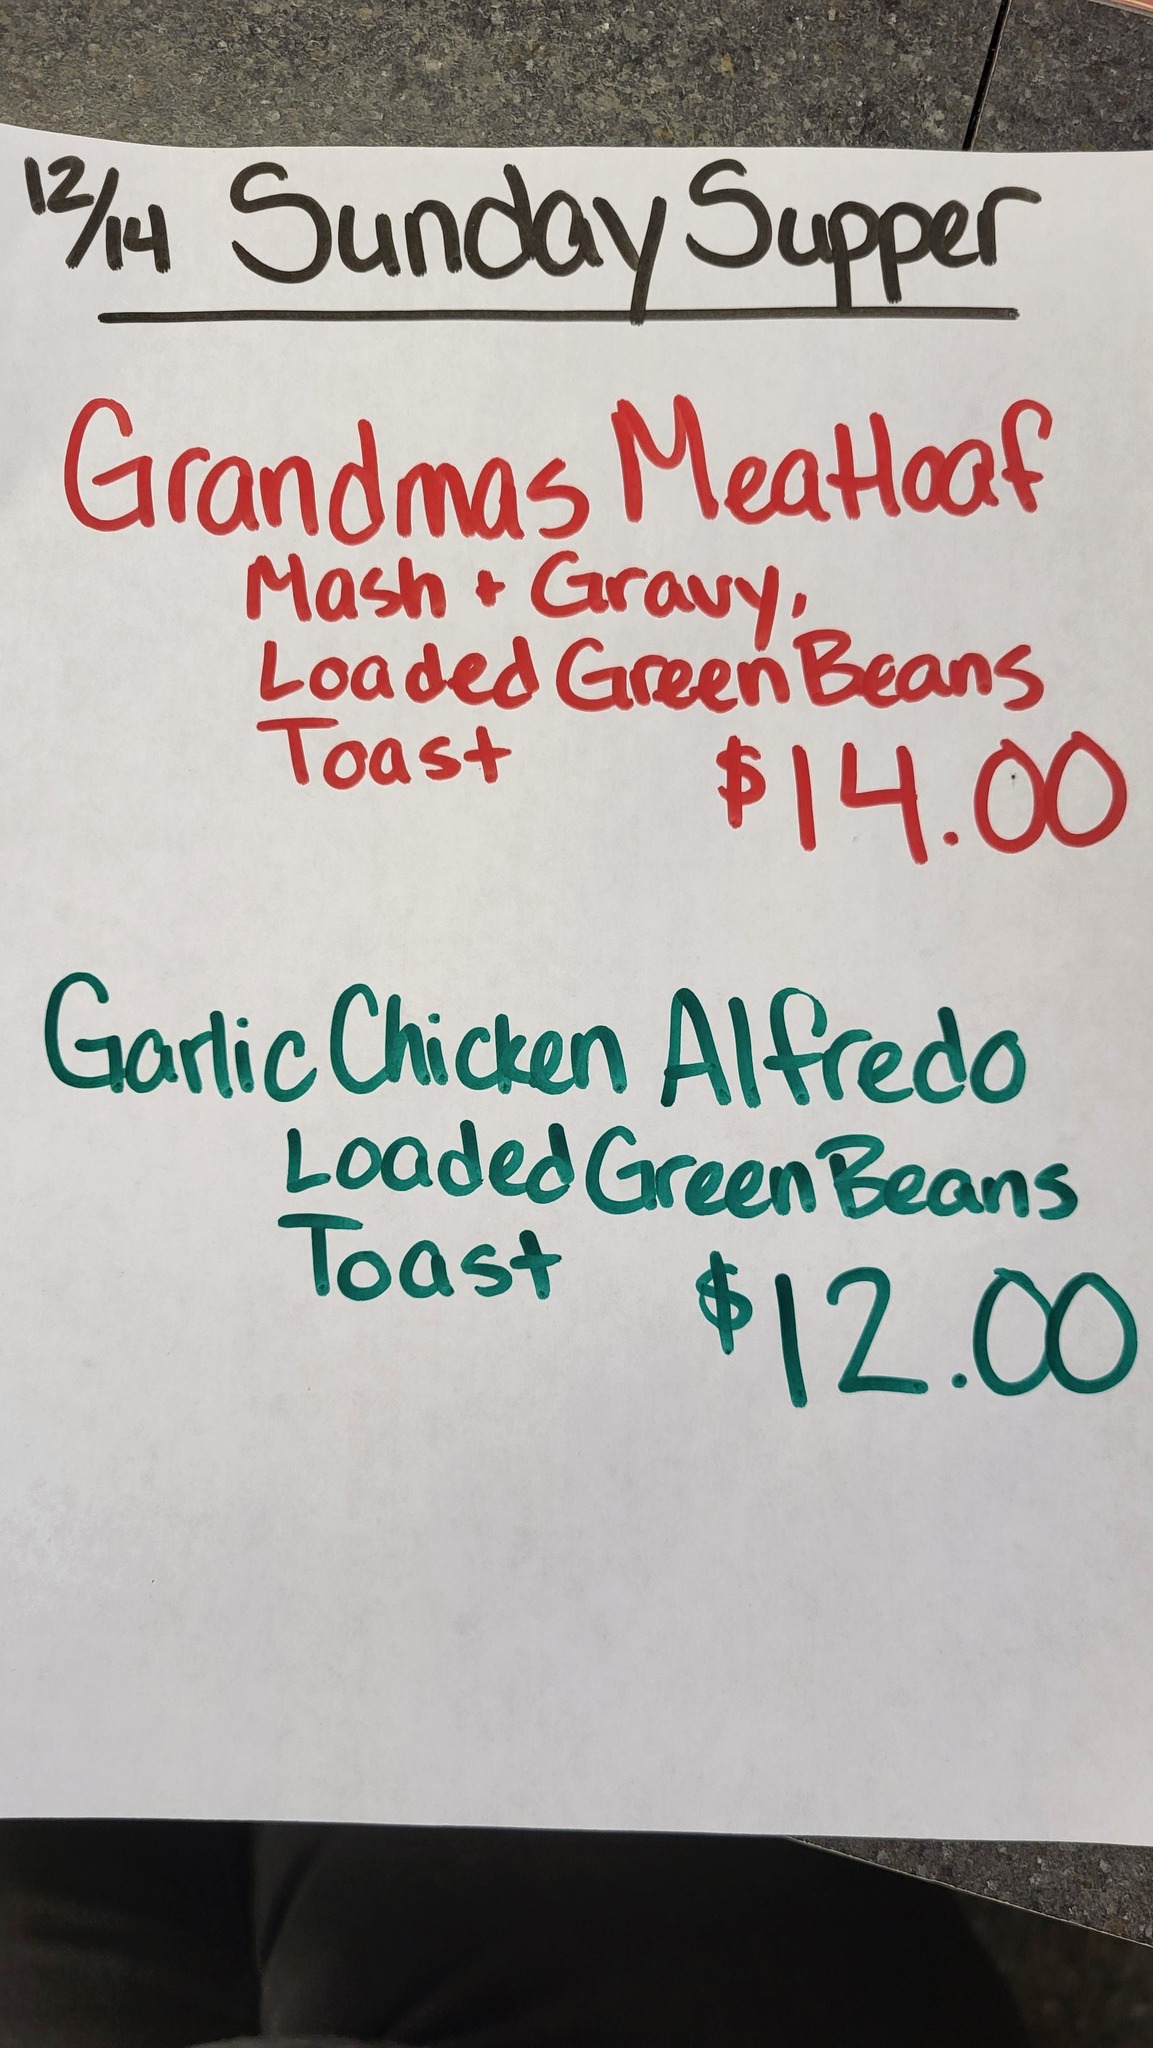 12/14 Sunday Supper
Grandmas Meatloaf
Mash + Gravy,
Loaded Green Beans
Toast $14.00
Garlic Chicken Alfredo
Loaded Green Beans
Toast $12.00